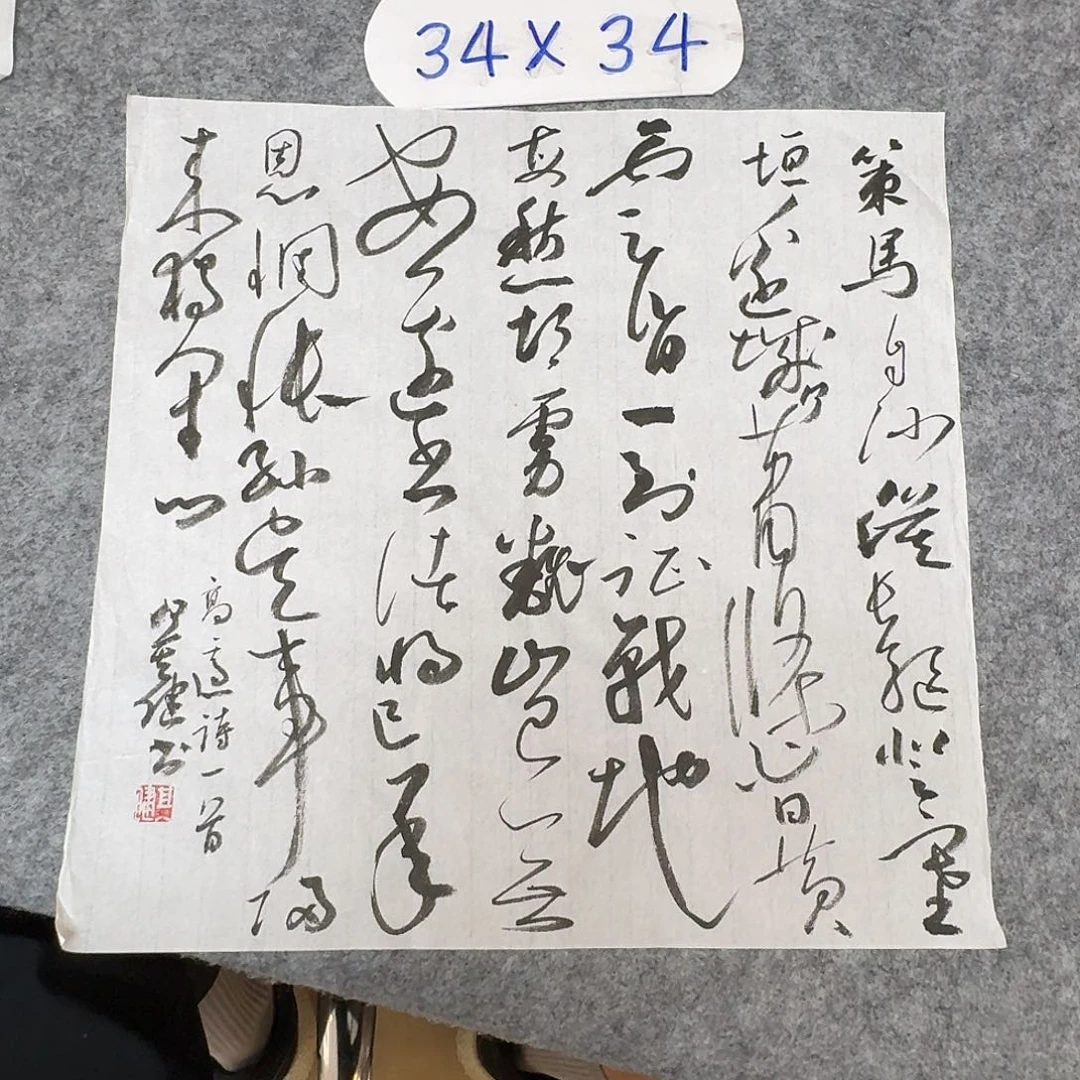 34X34
策馬自沙漠長驅登塞
垣邊城何蕭條白日黃
雲昏一到征戰地
每愁胡虜翻豈無
安邊書諸將已承
恩惆悵孫吳事歸
來獨閉門
高適詩一首
其健书